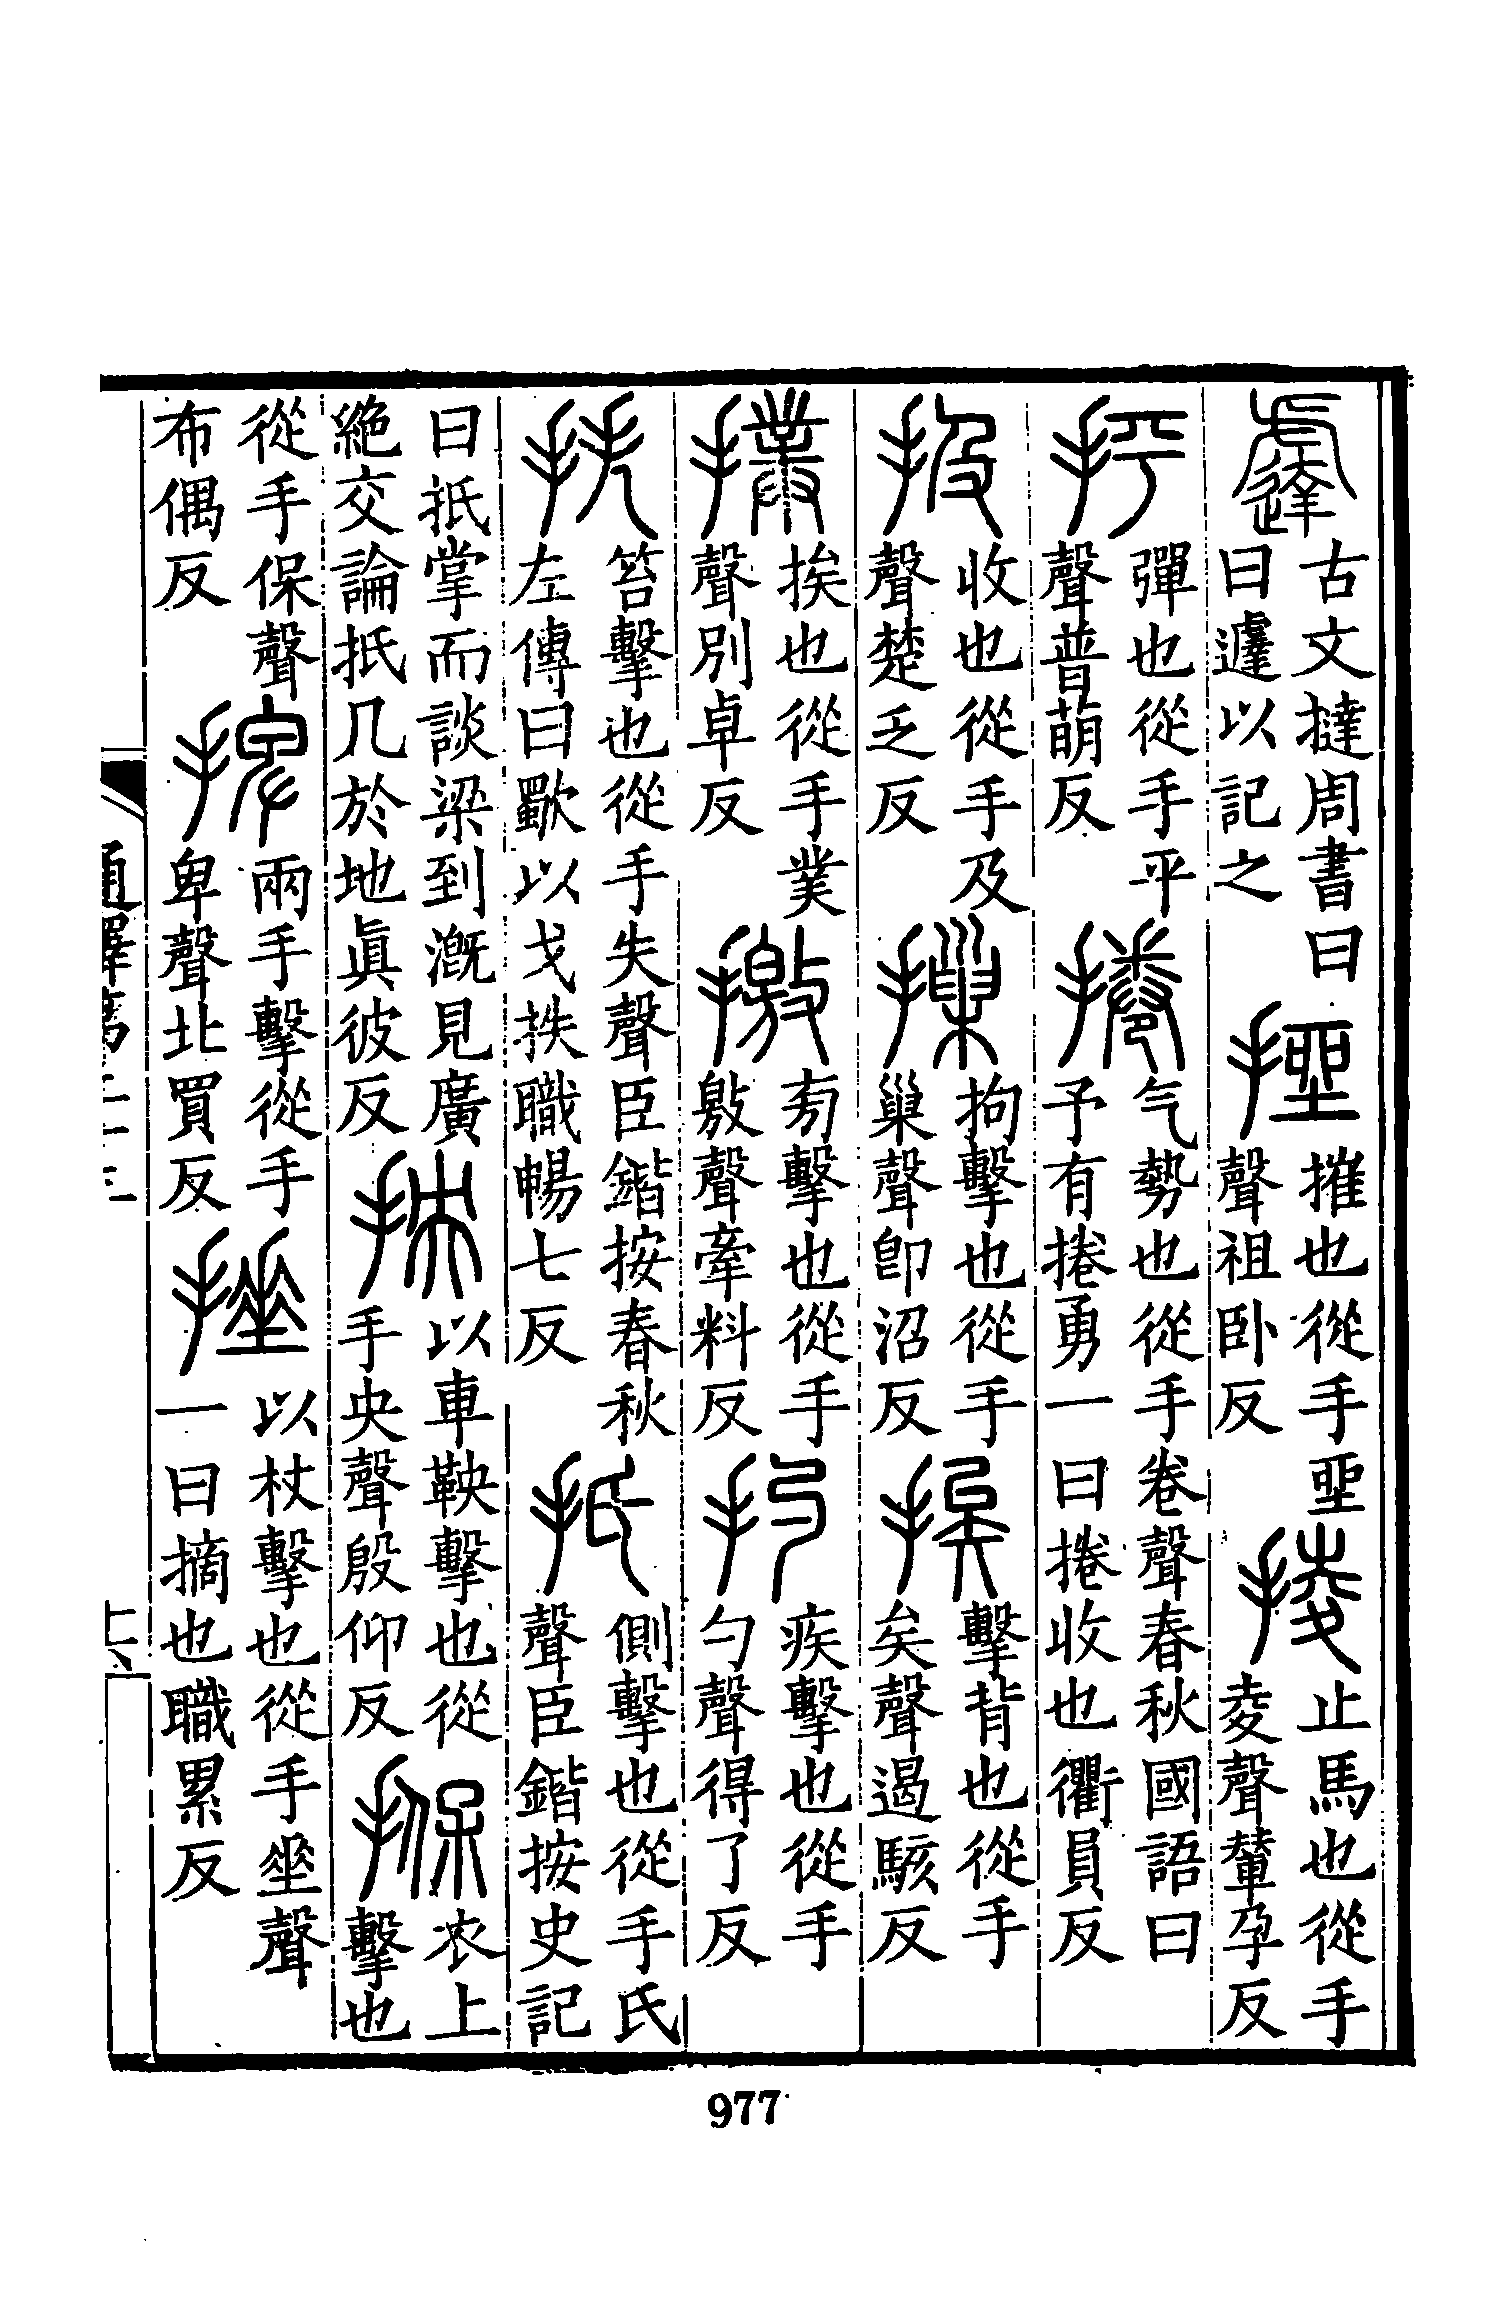 古文撻周書曰
曰遽以記之
挫
摧也從手坐
聲祖卧反
掕
止馬也從手
夌聲輦孕反
抨
彈也從手平
聲普萌反
捲
气勢也從手卷聲春秋國語曰
予有捲勇一曰捲收也衢員反
扱
收也從手及
聲楚乏反
摷
拘擊也從手
巢聲卽沼反
挨
擊背也從手
矣聲遏駭反
撲
挨也從手菐
聲別卓反
撽
㫄擊也從手
敫聲牽料反
扚
疾擊也從手
勺聲得了反
抶
笞擊也從手失聲臣鍇按春秋
左傳曰歜以戈抶職暢七反
扺
側擊也從手氏
聲臣鍇按史記
曰扺掌而談梁到溉見廣
絶交論扺几於地眞彼反
抰
以車鞅擊也從
手央聲殷仰反
㨐
衣上
擊也
從手保聲
布偶反
捭
兩手擊從手
卑聲北買反
捶
以杖擊也從手坙聲
一曰摘也職累反
通釋第二十三
十六
977